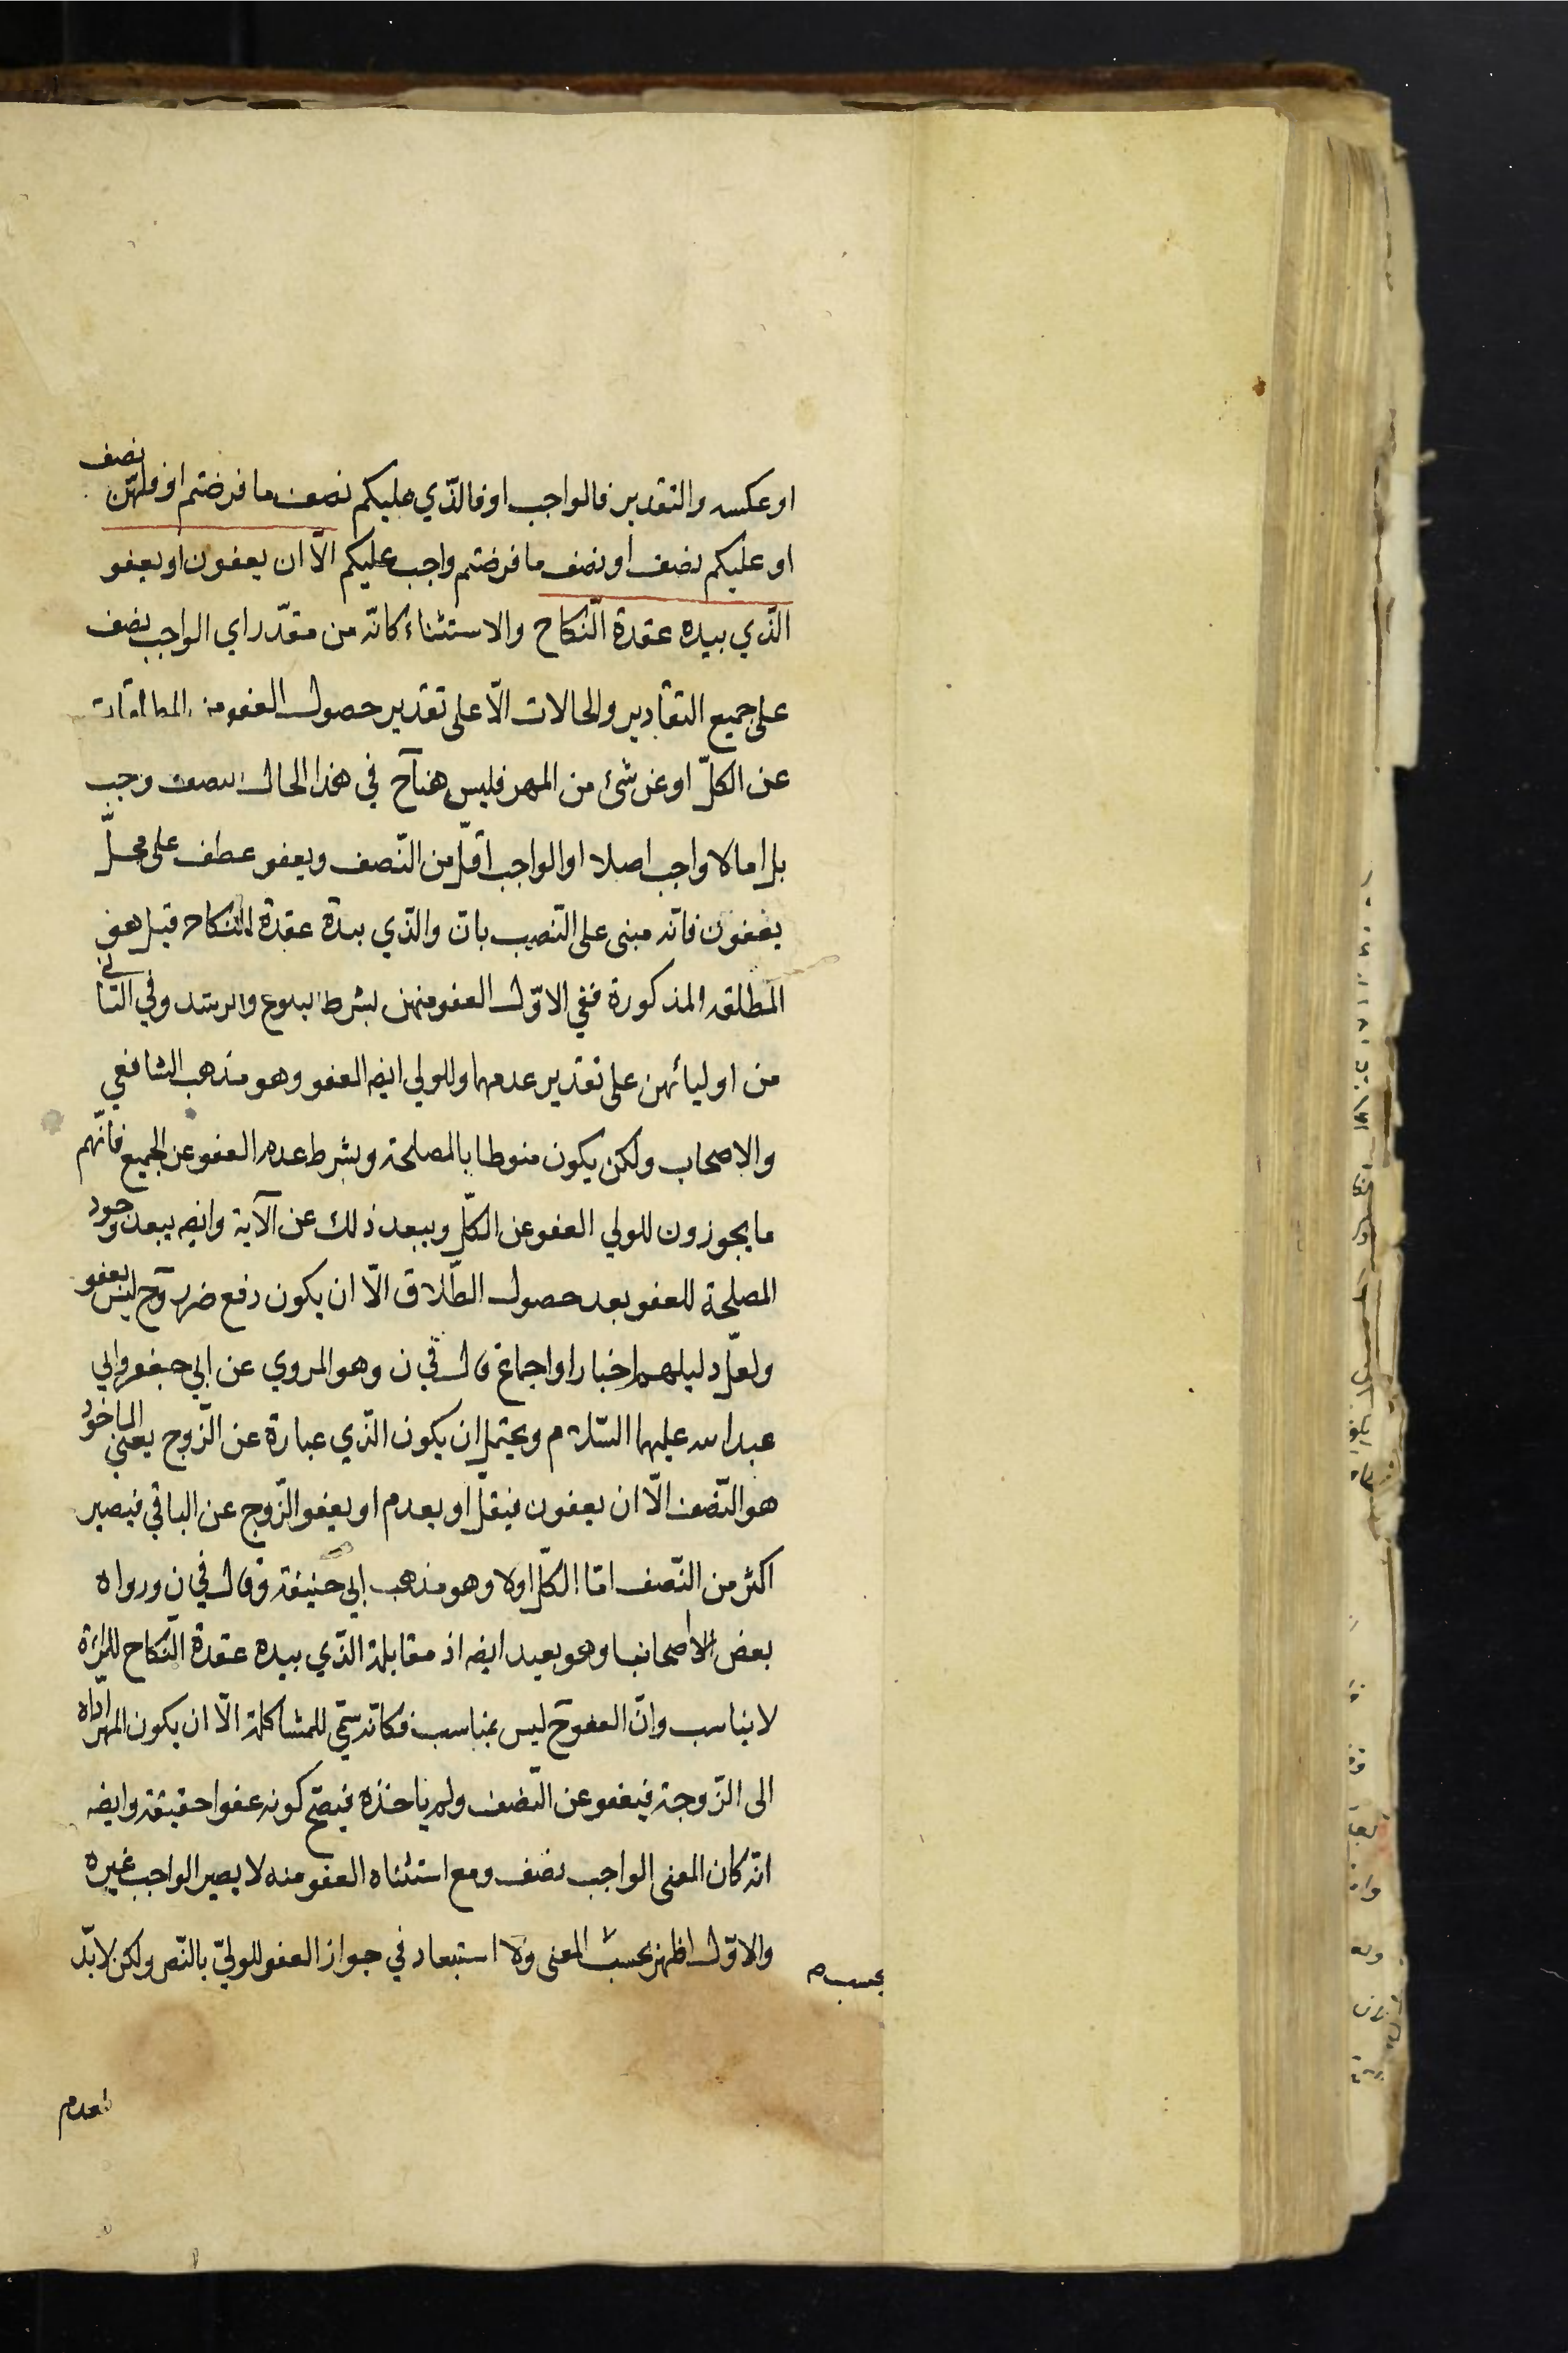 او عكسه والتقدير فالواجب او فالذّي عليكم نصف ما فرضتم او فلهنّ نصف
او عليكم نصف او نصف ما فرضتم واجب عليكم الّا ان يعفون او يعفو
الذّي بيده عقدة النّكاح والاستثناء كانّه من مقدّر اي الواجب نصف
على جميع التقادير والحالات الّا على تقدير حصول العفو من المطلقات
عن الكلّ او عن شئ من المهر فليس هنا ح في هذا الحال النصف وجب
بل اما لا واجب اصلا او الواجب اقلّ من النّصف ويعفو عطف على محلّ
يعفون فانّه مبنى على النّصب بان والذّي بيدة عقدة النكاح قيل هو
المطلقه المذكورة ففي الاوّل العفو منهن بشرط البلوغ والرشد وفي الثّاني
من اوليائهن على تقدير عدمهما وللولي ايضا العفو وهو مذهب الشافعي
والاصحاب ولكن يكون منوطا بالمصلحة وبشرط عدم العفو عن الجميع فانّهم
ما يجوزون للولي العفو عن الكلّ ويبعد ذلك عن الآية وايضه يبعد وجود
المصلحة للعفو بعد حصول الطّلاق الّا ان يكون دفع ضرر وح ليس بعفو
ولعلّ دليلهم اخبار او اجماع قال في ن وهو المروي عن ابي جعفر وابي
عبد الله عليهما السّلام ويحتمل ان يكون الذّي عبارة عن الزّوج يعني الماخوذ
هو النّصف الّا ان يعفون فيقلّ او يعدم او يعفو الزّوج عن الباقي فيصير
اكثر من النّصف امّا الكلّ اولا وهو مذهب ابي حنيفة وقال في ن ورواه
بعض الاصحابنا وهو بعيد ايضه اذ مقابلة الذّي بيده عقدة النّكاح للمراة
لا يناسب وانّ العفو ح ليس بمناسب فكانّه سمّي للمشاكلة الّا ان يكون المهر ادّاه
الى الزّوجة فيعفو عن النّصف ولم ياخذه فيصحّ كونه عفوا حقيقة وايضه
انّه كان المعنى الواجب نصف ومع استثناه العفو منه لا يصير الواجب غيره
والاوّل اظهر بحسب المعنى ولا استبعاد في جواز العفو للوليّ بالنّص ولكن لابدّ
بحسب
لعدم